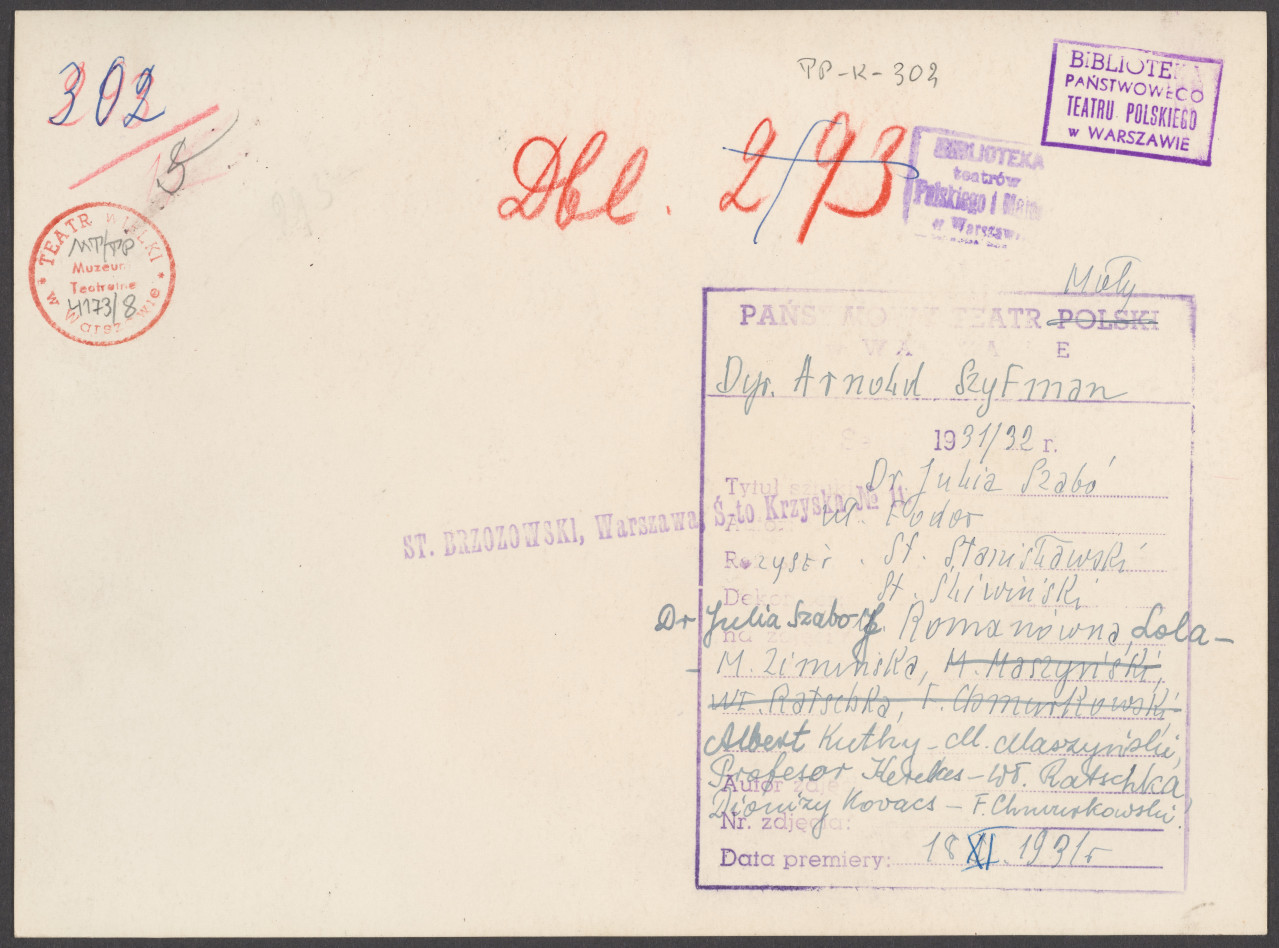 302
5
PP-K-302
BIBLIOTEKA
PAŃSTWOWEGO
TEATRU POLSKIEGO
w WARSZAWIE
Dbl. 293
BIBLIOTEKA
teatrów
Polskiego i
w Warszawie
TEATR WIELKI
MT/PP
Muzeum
Teatralne
4173/8
w Warszawie
Mały
PAŃSTWOWY TEATR POLSKI
Dyr. Arnold Szyfman
1931/32 r.
Tytuł sztuki Dr Julia Szabó
Wł. Fodor
Reżyser St. Stanisławski
St. Śliwiński
ST. BRZOZOWSKI, Warszawa, Ś-to Krzyska № 11
Dr Julia Szabo J. Romanówna, Lola-
- M. Zimińska, M. Maszyński,
Wł. Ratschka, F. Chmurkowski
Albert Kuthy - M. Maszyński,
Profesor Kerekes - Wł. Ratschka
Autor zdję
Dionizy Kovacs - F. Chmurkowski
Nr. zdjęcia:
Data premiery: 18 XI. 1931 r